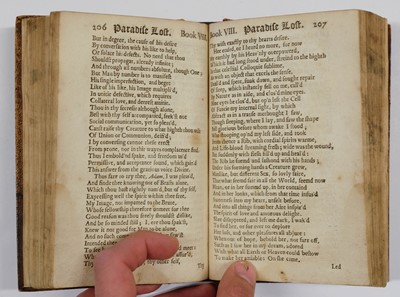 206 Paradise Lost. Book VIII.
But in degree, the cause of his desire
By conversation with his like to help,
Or solace his defects. No need that thou
Shouldst propagat, already infinite,
And through all numbers absolute, though One;
But Man by number is to manifest
His single imperfection, and beget
Like of his like, his Image multipli'd,
In unitie defective, which requires
Collateral love, and dearest amitie.
Thou in thy secresie although alone,
Best with thy self accompanied, seek'st not
Social communication, yet so pleas'd,
Canst raise thy Creature to what highth thou wilt
Of Union or Communion, deifi'd;
I by conversing cannot these erect
From prone, nor in thir wayes complacence find.
Thus I embold'nd spake, and freedom us'd
Permissive, and acceptance found, which gain'd
This answer from the gratious voice Divine.
Thus farr to try thee, Adam, I was pleas'd,
And finde thee knowing not of Beasts alone,
Which thou hast rightly nam'd, but of thy self,
Expressing well the spirit within thee free,
My Image, not imparted to the Brute,
Whose fellowship therefore unmeet for thee
Good reason was thou freely shouldst dislike,
And be so minded still; I, ere thou spak'st,
Knew it not good for Man to be alone,
And no such
Intended
To see how
What next I
Thy
Thy
Book VIII. Paradise Lost. 207
Thy wish exactly to thy hearts desire.
Hee ended, or I heard no more, for now
My earthly by his Heav'nly overpowred,
Which it had long stood under, streind to the highth
In that celestial Colloquie sublime,
As with an object that excels the sense,
Dazl'd and spent, sunk down, and sought repair
Of sleep, which instantly fell on me, call'd
By Nature as in aide, and clos'd mine eyes.
Mine eyes he clos'd, but op'n left the Cell
Of Fancie my internal sight, by which
Abstract as in a transe methought I saw,
Though sleeping, where I lay, and saw the shape
Still glorious before whom awake I stood;
Who stooping op'nd my left side, and took
From thence a Rib, with cordial spirits warme,
And Life-blood streaming fresh; wide was the wound,
But suddenly with flesh fill'd up and heal'd:
The Rib he formd and fashond with his hands;
Under his forming hands a Creature grew,
Manlike, but different Sex, so lovly faire,
That what seemd fair in all the World, seemd now
Mean, or in her summd up, in her containd
And in her looks, which from that time infus'd
Sweetness into my heart, unfelt before,
And into all things from her Aire inspir'd
The spirit of love and amorous delight.
Shee disappeerd, and left me dark, I wak'd
To find her, or for ever to deplore
Her loss, and other pleasures all abjure:
When out of hope, behold her, not farr off,
Such as I saw her in my dream, adornd
With what all Earth or Heaven could bestow
To make her amiable: On she came,
Led